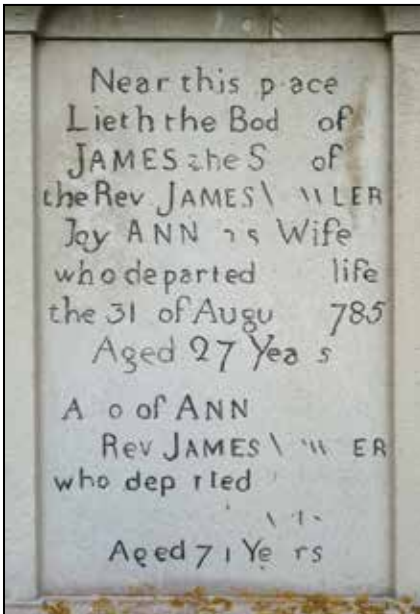 Near this p ace
Lieth the Bod of
JAMES the S of
the Rev JAMES LER
Joy ANN Wife
who departed life
the 31 of Augu 785
Aged 27 Yea s
A o of ANN
Rev JAMES ER
who dep rted
Aged 71 Ye rs